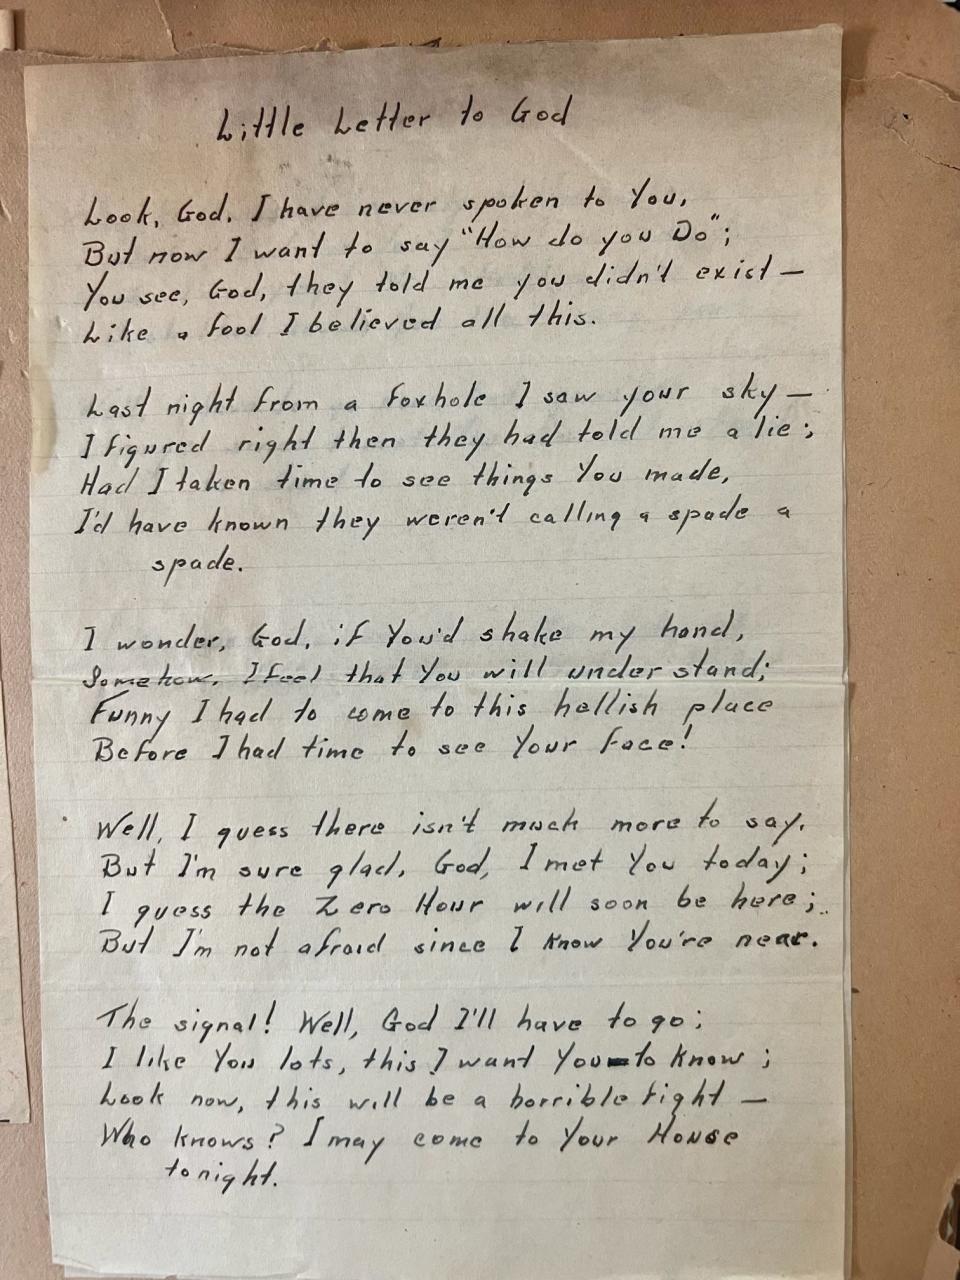 Little Letter to God
Look, God. I have never spoken to You,
But now I want to say "How do you Do";
You see, God, they told me you didn't exist —
Like a fool I believed all this.
Last night from a foxhole I saw your sky —
I figured right then they had told me a lie;
Had I taken time to see things You made,
I'd have known they weren't calling a spade a
spade.
I wonder, God, if You'd shake my hand,
Somehow, I feel that You will understand;
Funny I had to come to this hellish place
Before I had time to see Your face!
Well, I guess there isn't much more to say,
But I'm sure glad, God, I met You today;
I guess the Zero Hour will soon be here;
But I'm not afraid since I know You're near.
The signal! Well, God I'll have to go;
I like You lots, this I want You to know;
Look now, this will be a horrible fight —
Who knows? I may come to Your House
tonight.